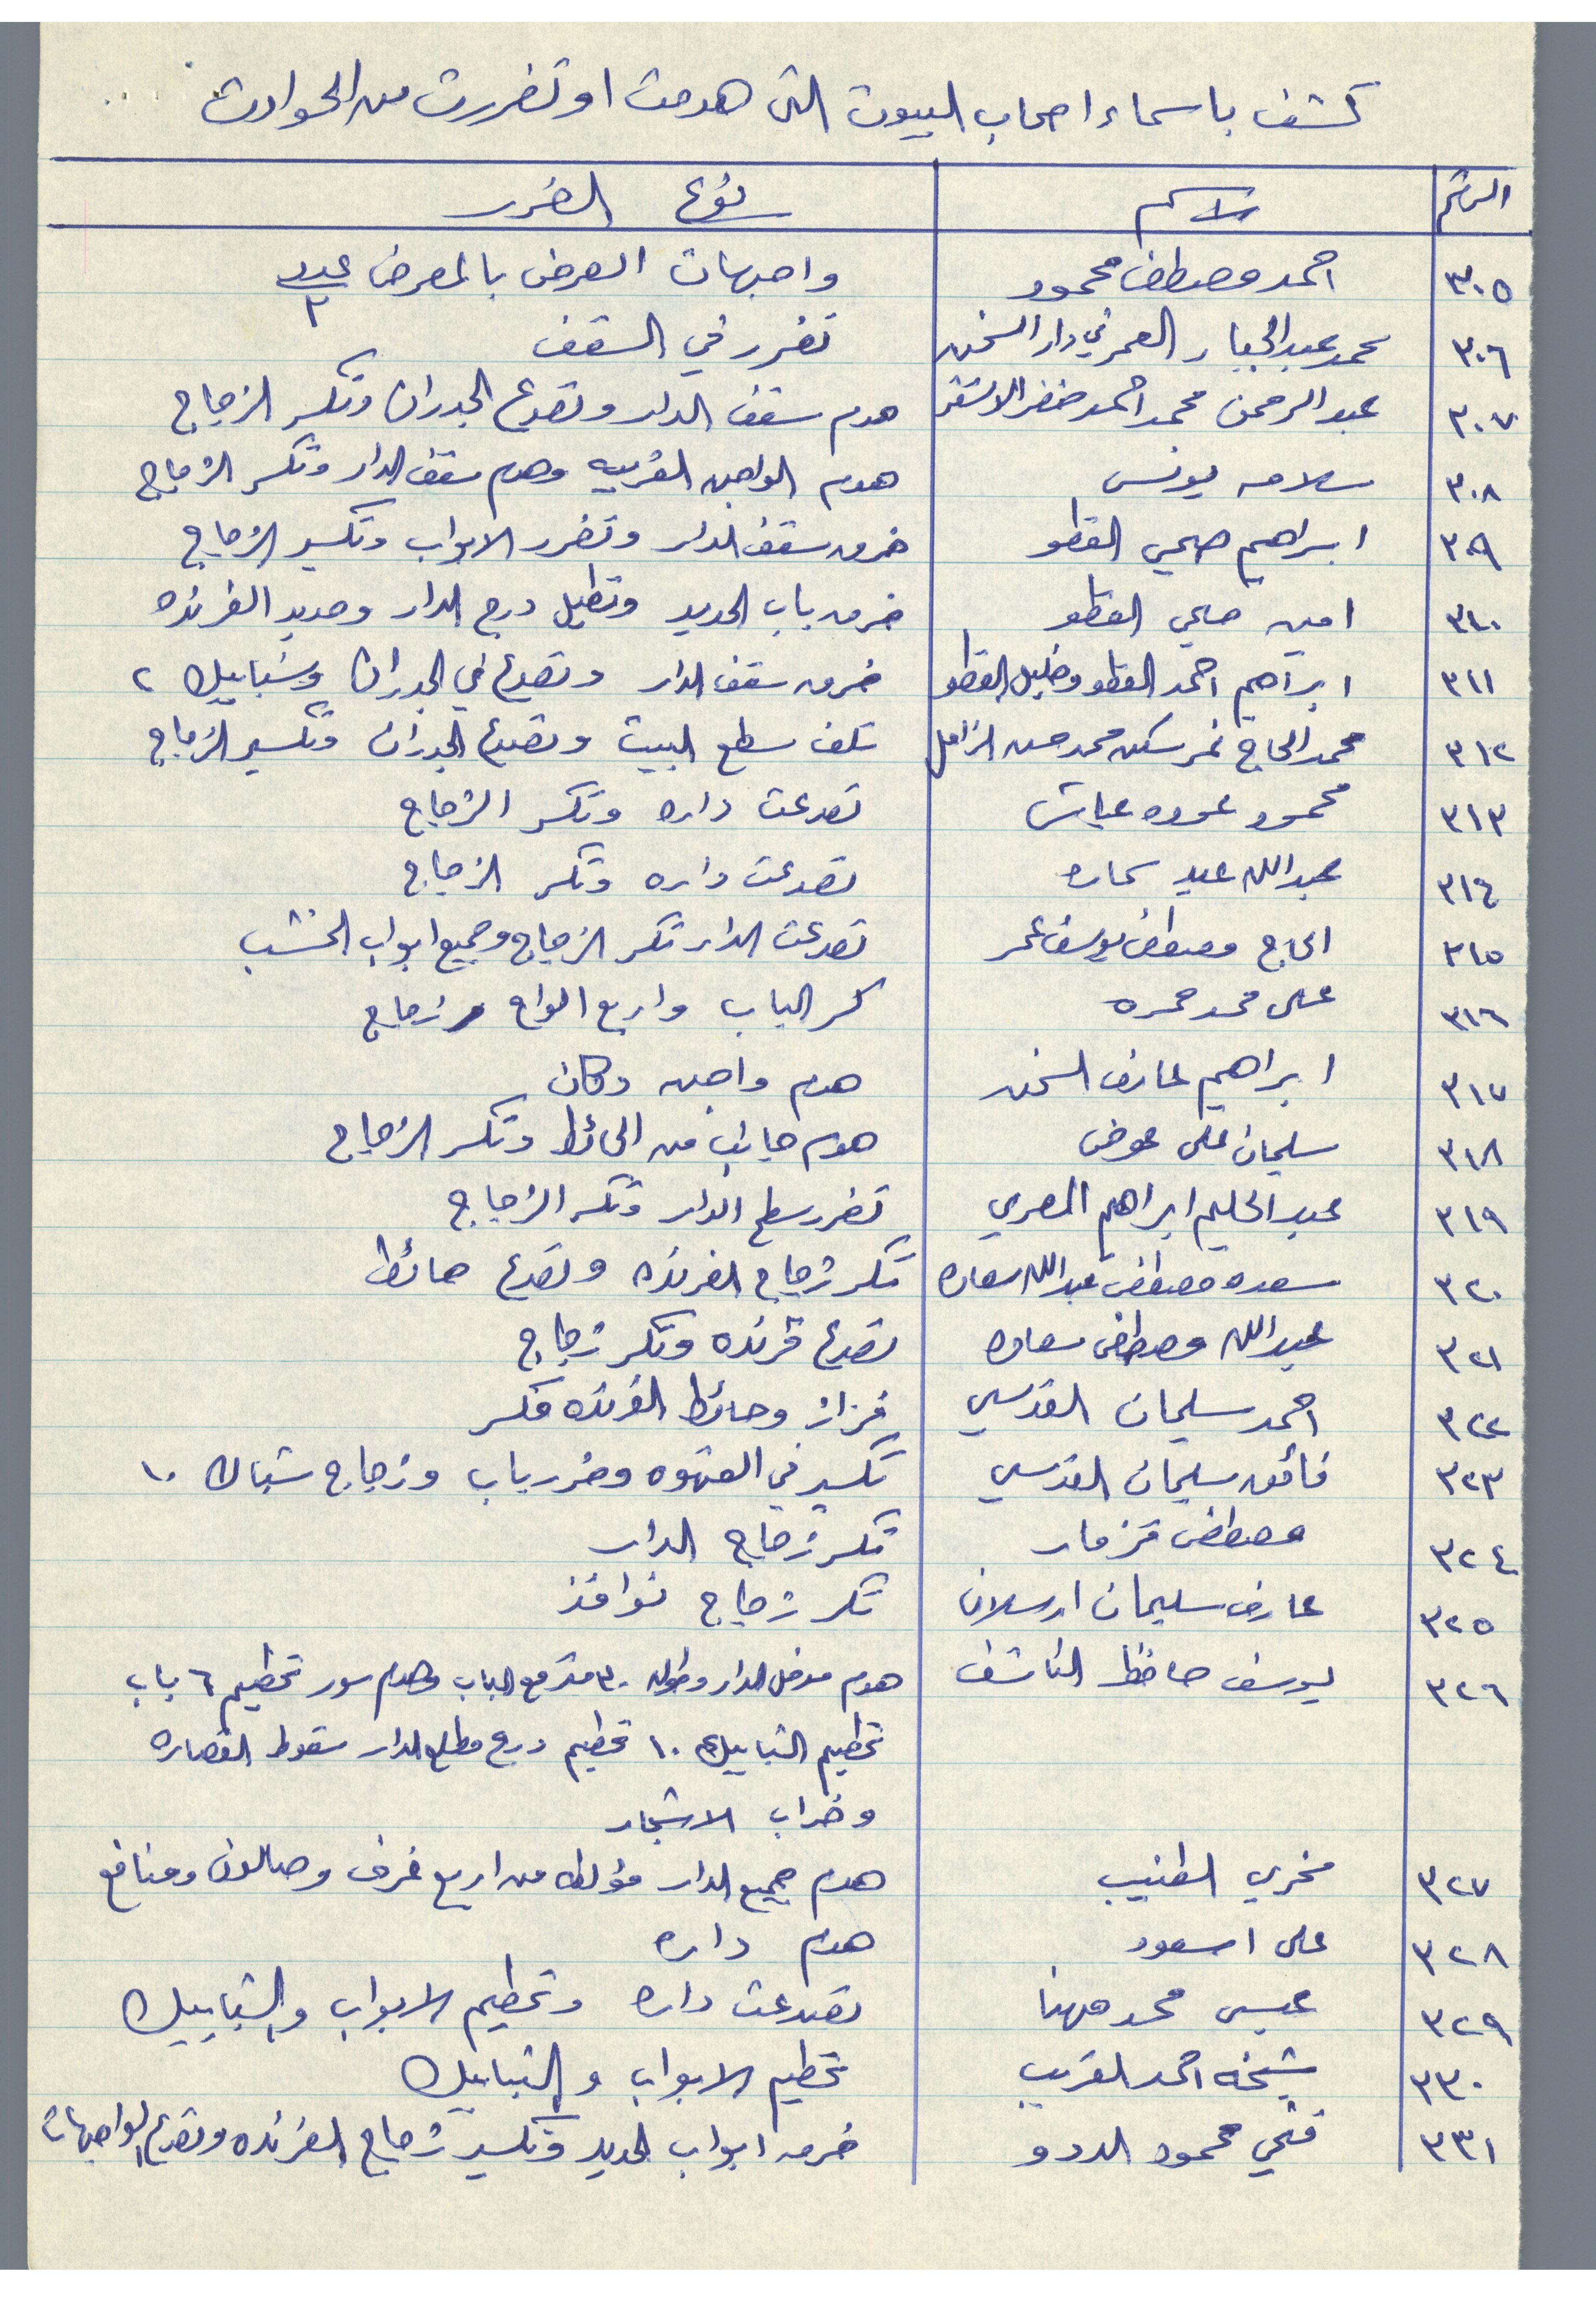 كشف باسماء اصحاب البيوت التي هدمت او تضررت من الحوادث
الرقم الاسم نوع الضرر
٣٠٥ احمد مصطفى محمود واجهات العرض بالمعرض عدد ٢
٣٠٦ محمد عبد الجبار العمر في دار السخن تضرر في السقف
٣٠٧ عبد الرحمن محمد احمد خضر الاشقر هدم سقف الدار وتصدع الجدران وتكسر الزجاج
٣٠٨ سلامه يونس هدم الواجهه الغربيه وهدم سقف الدار وتكسر الزجاج
٣٠٩ ابراهيم صبحي القطو خرق سقف الدار وتضرر الابواب وتكسير الزجاج
٣١٠ امين صبحي القطو خرق باب الحديد وتعطيل درج الدار وحديد الفرنده
٣١١ ابراهيم احمد القطو وخليل القطو خرق سقف الدار وتصدع في الجدران وشبابيك ٢
٣١٢ محمد الحاج نمر سكن محمد حسن الزامل تلف سطح البيت وتصدع الجدران وتكسير الزجاج
٣١٣ محمود عوده عياش تصدعت داره وتكسر الزجاج
٣١٤ عبد الله عيد تصدعت داره وتكسر الزجاج
٣١٥ الحاج مصطفى يوسف عمر تصدعت الدار تكسر الزجاج وجميع ابواب الخشب
٣١٦ علي محمد حمزه كسر الباب واربع الواح زجاج
٣١٧ ابراهيم عارف السخن هدم واجهه دكان
٣١٨ سليمان علي عوض هدم جانب من الحائط وتكسر الزجاج
٣١٩ عبد الحليم ابراهيم المصري تضرر سطح الدار وتكسر الزجاج
٣٢٠ سعده مصطفى عبد الله سعاده تكسر زجاج الفرنده وتصدع حائط
٣٢١ عبد الله مصطفى سعاده تصدع فرنده وتكسر زجاج
٣٢٢ احمد سليمان القدسي قزاز وحائط الفرنده مكسر
٣٢٣ فائق سليمان القدسي تكسير في القهوه وضرر باب وزجاج شباك ١٠
٣٢٤ مصطفى قزمار تكسر زجاج الدار
٣٢٥ عارف سليمان ارسلان تكسر زجاج نوافذ
٣٢٦ يوسف حافظ الكاشف هدم مدخل الدار وطوله ٣٠ متر مع الباب وهدم سور تحطيم ٦ باب
تحطيم الشبابيك ١٠ تحطيم درج مطلع الدار سقوط القصاره
وخراب الاشجار
٣٢٧ فخري الطنيب هدم جميع الدار مؤلفه من اربع غرف وصالون ومنافع
٣٢٨ علي اسعود هدم داره
٣٢٩ عيسى محمد مهنا تصدعت داره وتحطيم الابواب والشبابيك
٣٣٠ شيخه احمد الغريب تحطيم الابواب والشبابيك
٣٣١ فتحي محمود الددو خرق ابواب الحديد وتكسير زجاج الفرنده وتصدع الواجهات